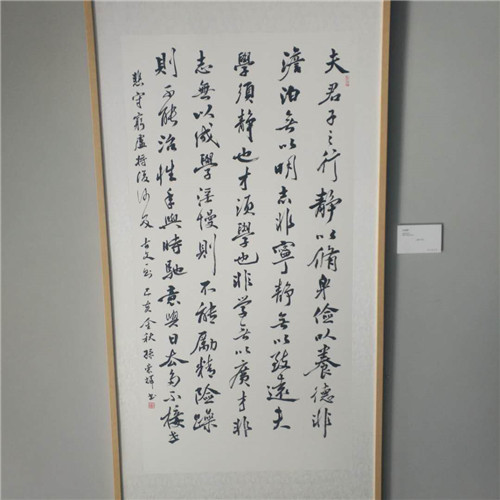 夫君子之行静以脩身儉以養德非
澹泊無以明志非寧静無以致遠夫
學須静也才須學也非学無以廣才非
志無以成學淫慢則不能勵精險躁
則不能治性年與時馳意與日去多不接世
悲守窮廬將復何及 己亥金秋 书